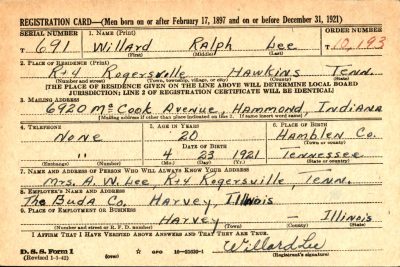 REGISTRATION CARD—(Men born on or after February 17, 1897 and on or before December 31, 1921)
SERIAL NUMBER 1. NAME (Print) ORDER NUMBER
T 691 Willard Ralph Lee 10,193
(First) (Middle) (Last)
2. PLACE OF RESIDENCE (Print)
R+4 Rogersville Hawkins Tenn.
(Number and street) (Town, township, village, or city) (County) (State)
[THE PLACE OF RESIDENCE GIVEN ON THE LINE ABOVE WILL DETERMINE LOCAL BOARD
JURISDICTION; LINE 2 OF REGISTRATION CERTIFICATE WILL BE IDENTICAL]
3. MAILING ADDRESS
6920 McCook Avenue, Hammond, Indiana
[Mailing address if other than place indicated on line 2. If same insert word same]
4. TELEPHONE 5. AGE IN YEARS 6. PLACE OF BIRTH
None 20 Hamblen Co.
DATE OF BIRTH (Town or county)
" 4 23 1921 Tennessee
(Exchange) (Number) (Mo.) (Day) (Yr.) (State or country)
7. NAME AND ADDRESS OF PERSON WHO WILL ALWAYS KNOW YOUR ADDRESS
Mrs. A. W. Lee, R+4 Rogersville, Tenn.
8. EMPLOYER'S NAME AND ADDRESS
The Buda Co. Harvey, Illinois
9. PLACE OF EMPLOYMENT OR BUSINESS
Harvey — Illinois
(Number and street or R. F. D. number) (Town) (County) (State)
I AFFIRM THAT I HAVE VERIFIED ABOVE ANSWERS AND THAT THEY ARE TRUE.
D. S. S. Form 1 Willard Lee
(Revised 1-1-42) (over) GPO 16—21630-1 (Registrant's signature)